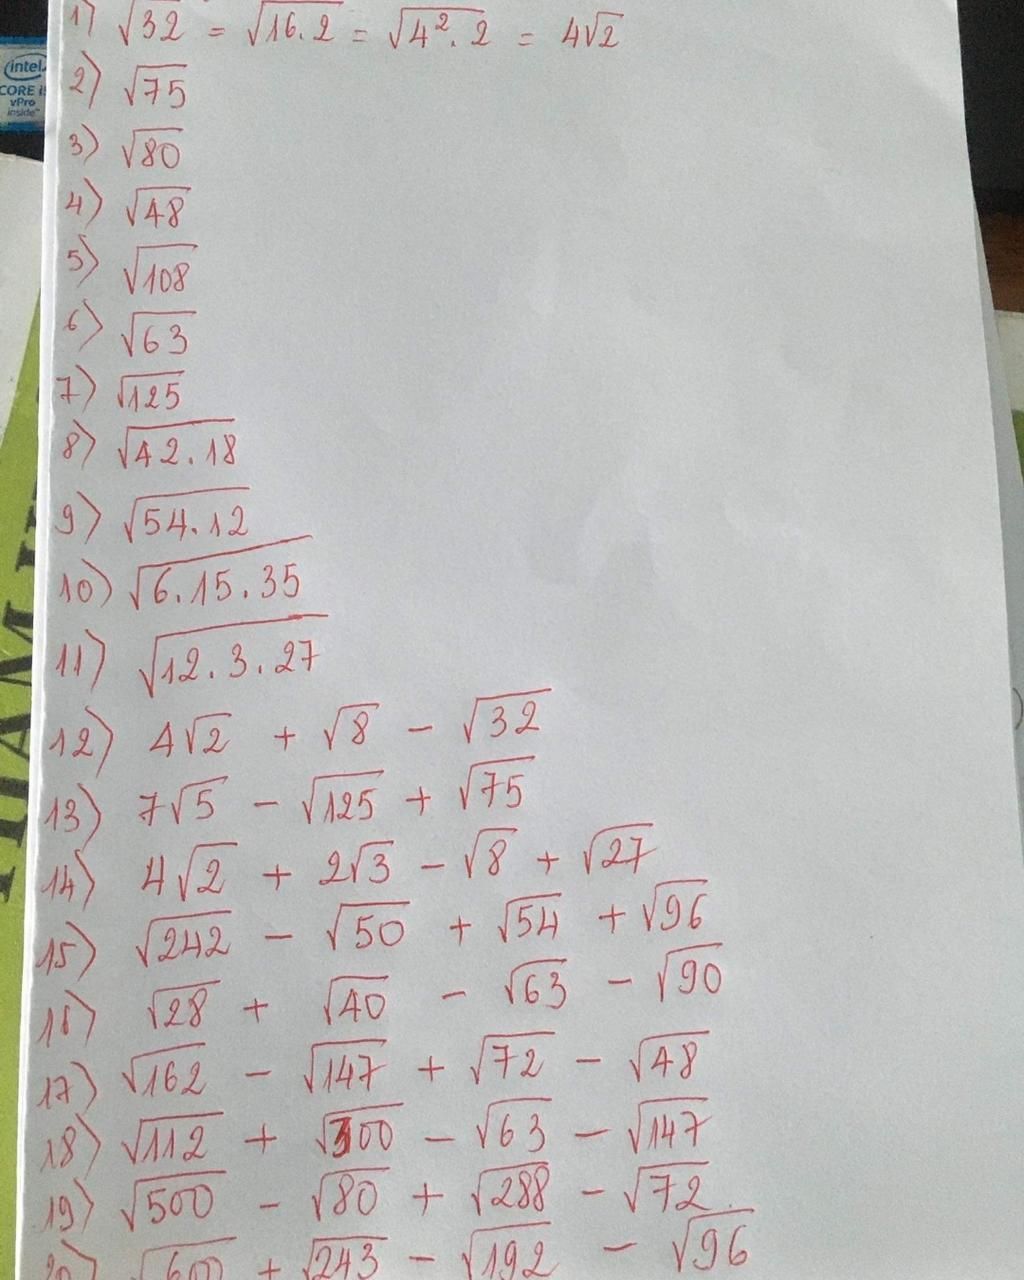 1) √32 = √16.2 = √4².2 = 4√2
intel
CORE i5
vPro
inside™
2) √75
3) √80
4) √48
5) √108
6) √63
7) √125
8) √42.18
9) √54.12
10) √6.15.35
11) √12.3.27
12) 4√2 + √8 - √32
13) 7√5 - √125 + √75
14) 4√2 + 2√3 - √8 + √27
15) √242 - √50 + √54 + √96
16) √28 + √40 - √63 - √90
17) √162 - √147 + √72 - √48
18) √112 + √300 - √63 - √147
19) √500 - √80 + √288 - √72
20) √600 + √243 - √192 - √96